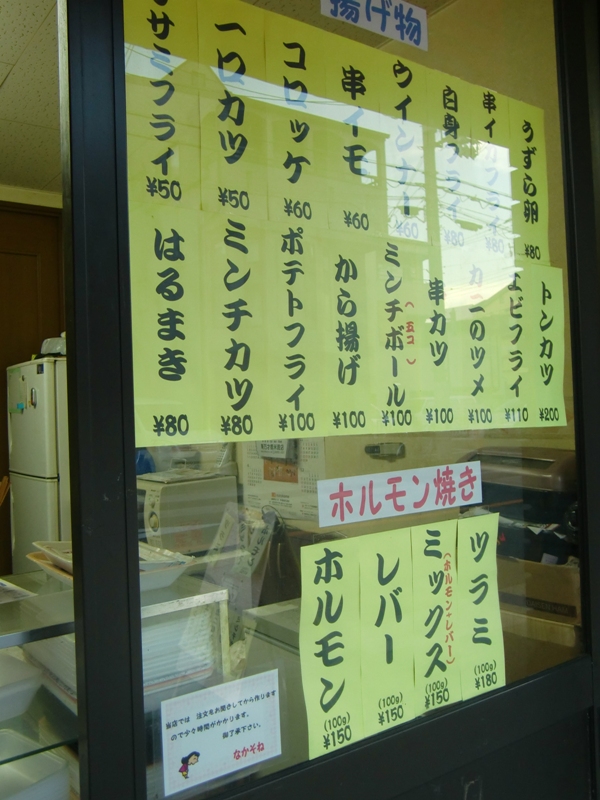 揚げ物
ササミフライ ¥50
一口カツ ¥50
コロッケ ¥60
串イモ ¥60
ウインナー ¥60
白身フライ ¥80
串イカフライ ¥80
うずら卵 ¥80
はるまき ¥80
ミンチカツ ¥80
ポテトフライ ¥100
から揚げ ¥100
ミンチボール(五コ) ¥100
串カツ ¥100
カニのツメ ¥100
エビフライ ¥110
トンカツ ¥200
ホルモン焼き
ホルモン (100g) ¥150
レバー (100g) ¥150
ミックス(ホルモン+レバー) (100g) ¥150
ツラミ (100g) ¥180
当店では 注文をお聞きしてから作ります
ので少々時間がかかります。
御了承下さい。
なかぞね